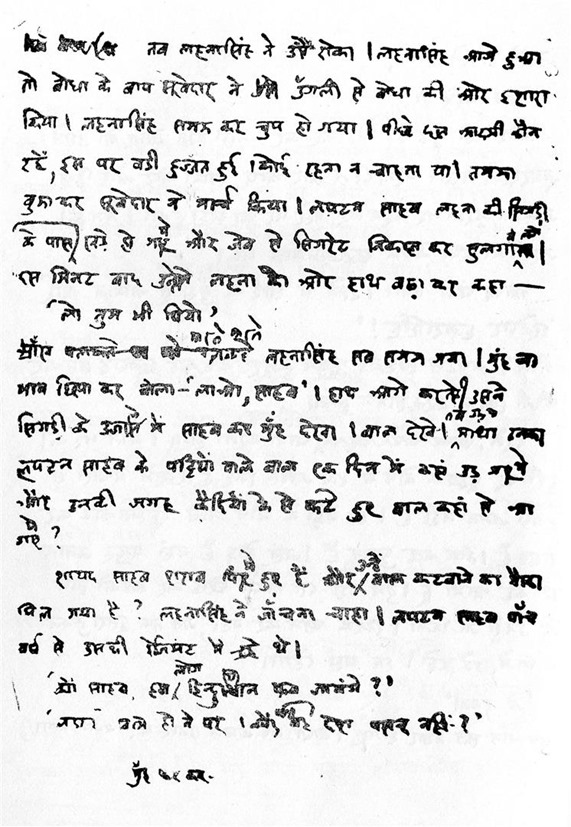 तब लहनासिंह ने उसे रोका । लहनासिंह आगे हुआ
तो बोधा के बाप सूबेदार ने उँगली से बोधा की ओर इशारा
किया । लहनासिंह समझ कर चुप हो गया । पीछे दस आदमी कौन
रहें, इस पर बडी हुज्जत हुई । कोई रहना न चाहता था । समझा
बुझाकर सूबेदार ने मार्च किया । लपटन साहब लहना की सिगडी
के पास खडे हो गए थे और जेब से सिगरेट निकाल कर सुलगाने लगे ।
दस मिनट बाद उन्होंने लहना की ओर हाथ बढा कर कहा —
'लो तुम भी पियो'
लहनासिंह सब समझ गया । मुँह का
भाव छिपा कर बोला- 'लाओ, साहब' । हाथ आगे करते उसने
सिगडी के उजाले में साहब का मुँह देखा । बाल देखे । माथा ठनका
लपटन साहब के पट्टियों वाले बाल एक दिन में कहां उड गए
और उनकी जगह कैदियों के से कटे हुए बाल कहां से आ
गए ?
शायद साहब शराब पिए हुए हैं और उन्हें बाल कटवाने का मौका
मिल गया है ? लहनासिंह ने जाँचना चाहा । लपटन साहब पाँच
वर्ष से उसकी रेजिमेंट में थे ।
'क्यों साहब, हम लोग हिन्दुस्तान कब जायंगे ?'
होने पर । क्यों, क्या देश पसन्द नहीं ?'